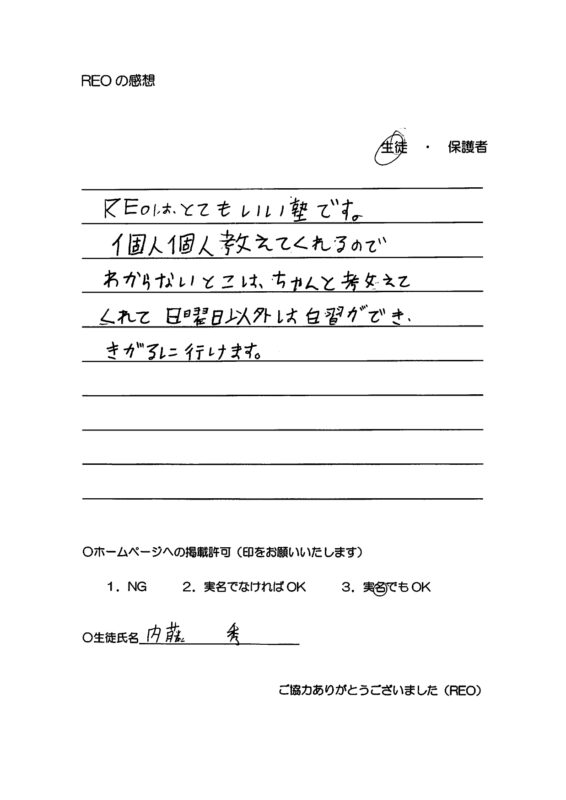 REOの感想
生徒 ・ 保護者
REOは、とてもいい塾です。
個人個人教えてくれるので
わからないとこは、ちゃんと教えて
くれて 日曜日以外は自習ができ、
きがるに行けます。
〇ホームページへの掲載許可（印をお願いいたします）
1．NG 2．実名でなければOK 3．実名でもOK
〇生徒氏名 内藤 秀
ご協力ありがとうございました（REO）